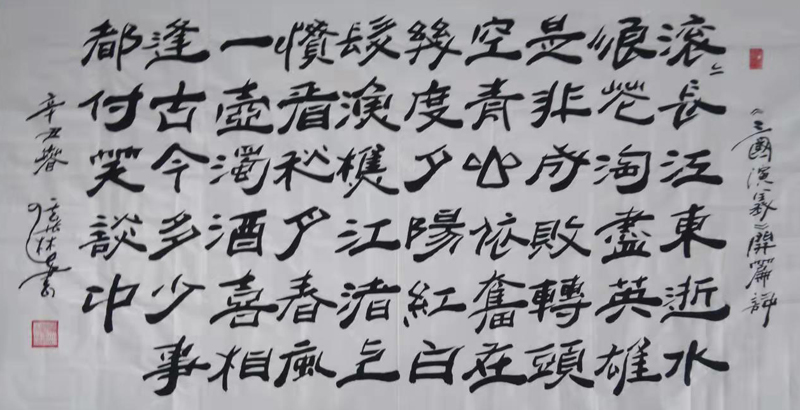 《三國演義》開篇詞
滚〻長江東逝水
浪花淘盡英雄
是非成敗轉頭
空青山依舊在
幾度夕陽紅白
髮漁樵江渚上
慣看秋月春風
一壺濁酒喜相
逢古今多少事
都付笑談中
辛丑春 林書